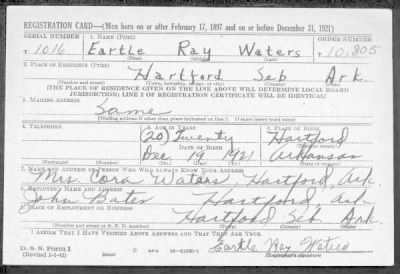 REGISTRATION CARD—(Men born on or after February 17, 1897 and on or before December 31, 1921)
SERIAL NUMBER 1. NAME (Print) ORDER NUMBER
T 1016 Eartle Ray Waters T 10,805
(First) (Middle) (Last)
2. PLACE OF RESIDENCE (Print)
Hartford Seb Ark.
(Number and street) (Town, township, village, or city) (County) (State)
(THE PLACE OF RESIDENCE GIVEN ON THE LINE ABOVE WILL DETERMINE LOCAL BOARD
JURISDICTION; LINE 2 OF REGISTRATION CERTIFICATE WILL BE IDENTICAL)
3. MAILING ADDRESS
Same
(Mailing address if other than place indicated on line 2. If same insert word same)
4. TELEPHONE 5. AGE IN YEARS 6. PLACE OF BIRTH
(20) Twenty Hartford
DATE OF BIRTH (Town or county)
Dec 19 1921 Arkansas
(Exchange) (Number) (Mo.) (Day) (Yr.) (State or country)
7. NAME AND ADDRESS OF PERSON WHO WILL ALWAYS KNOW YOUR ADDRESS
Mrs. Cora Waters, Hartford, Ark.
8. EMPLOYER'S NAME AND ADDRESS
John Bates Hartford, Ark.
9. PLACE OF EMPLOYMENT OR BUSINESS
Hartford Seb Ark.
(Number and street or R. F. D. number) (Town) (County) (State)
I AFFIRM THAT I HAVE VERIFIED ABOVE ANSWERS AND THAT THEY ARE TRUE.
D. S. S. Form 1
(Revised 1-1-42) Eartle Ray Waters
(Registrant's signature)